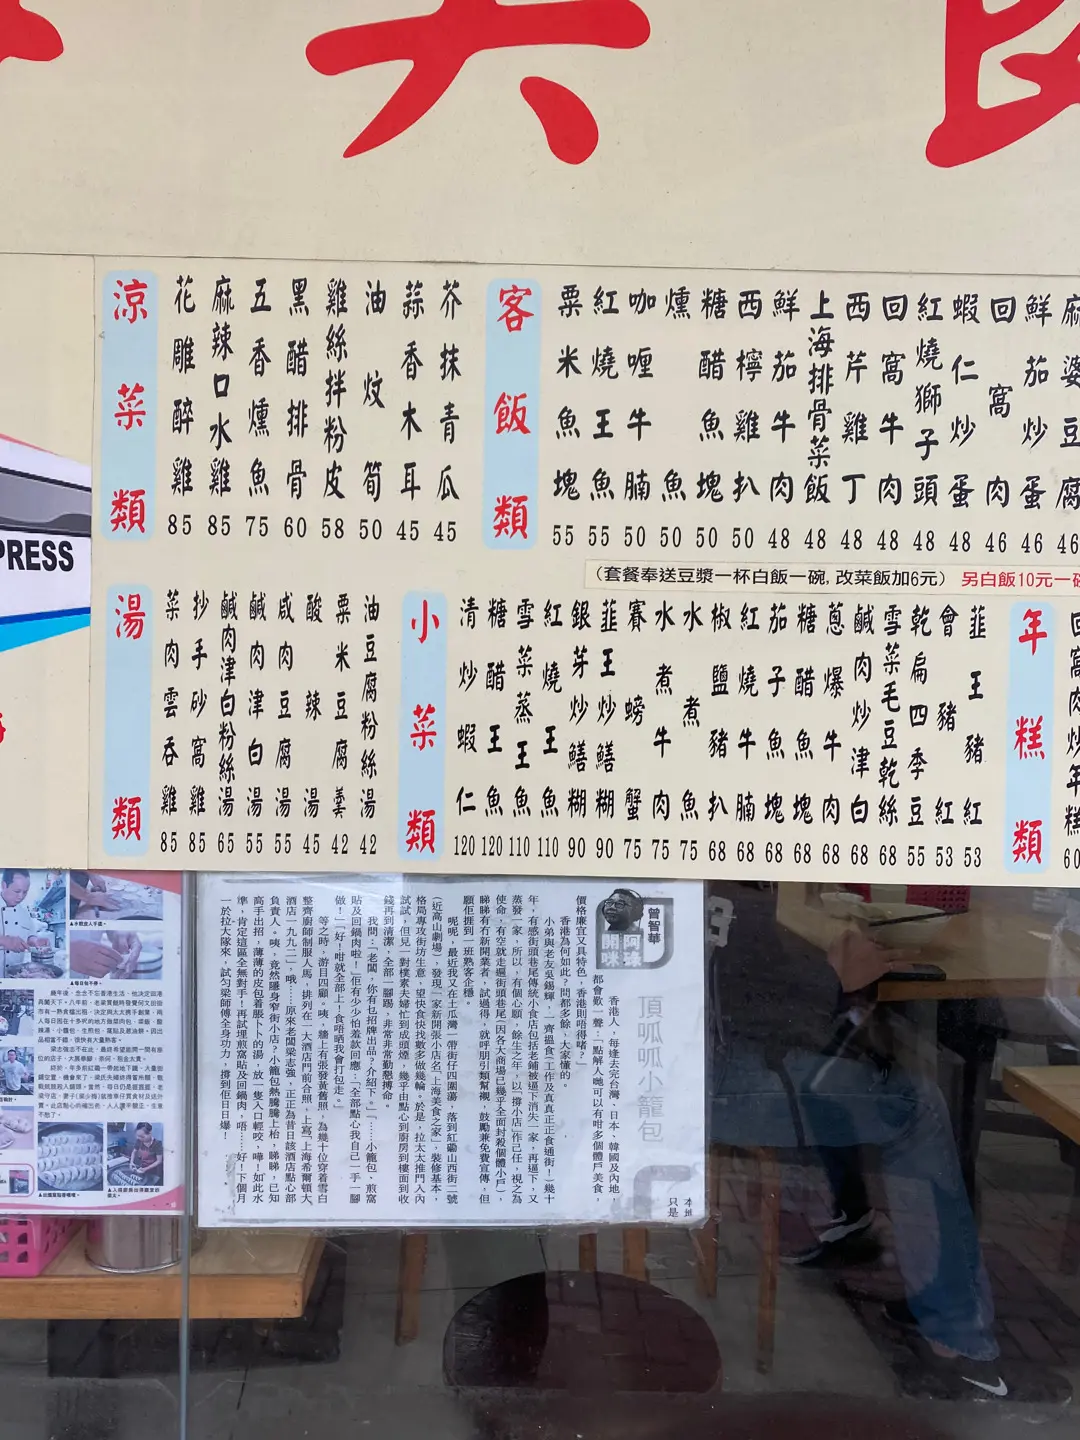 PRESS
涼菜類
花雕醉雞 85
麻辣口水雞 85
五香燻魚 75
黑醋排骨 60
雞絲拌粉皮 58
油炆筍 50
蒜香木耳 45
芥抹青瓜 45
客飯類
粟米魚塊 55
紅燒王魚 55
咖喱牛腩 50
燻魚 50
糖醋魚塊 50
西檸雞扒 50
鮮茄牛肉 48
上海排骨菜飯 48
西芹雞丁 48
回窩牛肉 48
紅燒獅子頭 48
蝦仁炒蛋 48
回窩肉 46
鮮茄炒蛋 46
麻婆豆腐 46
(套餐奉送豆漿一杯白飯一碗,改菜飯加6元) 另白飯10元一碗
湯類
菜肉雲吞雞 85
抄手砂窩雞 85
鹹肉津白粉絲湯 65
鹹肉津白湯 55
咸肉豆腐湯 55
酸辣湯 45
粟米豆腐羹 42
油豆腐粉絲湯 42
小菜類
清炒蝦仁 120
糖醋王魚 120
雪菜蒸王魚 110
紅燒王魚 110
銀芽炒鱔糊 90
韮王炒鱔糊 90
賽螃蟹 75
水煮牛肉 75
水煮魚 75
椒鹽豬扒 68
紅燒牛腩 68
茄子魚塊 68
糖醋魚塊 68
蔥爆牛肉 68
鹹肉炒津白 68
雪菜毛豆乾絲 68
乾扁四季豆 55
會豬紅 53
韮王豬紅 53
年糕類
回窩肉炒年糕 60
曾智華
開咪
頂呱呱小籠包
香港人,每逢去完台灣、日本、韓國及內地,
都會歎一聲:「點解人哋可以有咁多個體戶美食,
價格廉宜又具特色,香港則唔得啫?」
香港為何如此?問都多餘,大家懂的。
小弟與老友吳錫輝,一齊搵食(工作及真真正正食通街!)幾十
年,有感街頭巷尾傳統小食店包括老鋪被逼下消失一家,再逼下,又
蒸發一家,所以,有個心願,餘生之年,以「撐小店」作己任,視之為
使命,有空就走遍街頭巷尾(因各大商場已幾乎全面封殺個體小戶),
睇睇有冇新開業者,試過得,就呼朋引類幫襯,鼓勵兼免費宣傳,但
願佢捱到一班熟客企穩。
呢呢,最近我又在土瓜灣一帶街仔四圍蕩,落到紅磡山西街二號
(近高山劇場),發現一家新開張小店名「上海美食之家」,裝修基本,
格局專攻街坊生意,望快食快找數多做幾輪。於是,拉太太推門入內
試試,但見一對樸素夫婦忙到成頭煙,幾乎由點心到廚房到樓面到收
錢再到清潔,全部一腳踢,非常非常勤懇搏命。
我問:「老闆,你有乜招牌出品?介紹下。」「……小籠包、煎窩
貼及回鍋肉啦!」佢有少少怕羞款回應:「全部點心我自己一手一腳
做!」「好!咁就全部上,食唔晒我會打包走。」
等之時,游目四顧。咦,牆上有張發黃舊照,為幾十位穿着雪白
整齊廚師制服人馬,排列在一大酒店門前合照,上寫「上海希爾頓大
酒店一九九二」,哦……原來老闆梁志強,正正為昔日該酒店點心部
負責人。咦,竟然隱身窄街小店?小籠包熱騰騰上枱,睇睇,已知
高手出招,薄薄的皮包着脹卜卜的湯,放一隻入口輕咬,嘩!如此水
準,肯定這區全無對手!再試埋煎窩貼及回鍋肉,唔……好!下個月
一於拉大隊來,試勻梁師傅全身功力,撐到佢日日爆!